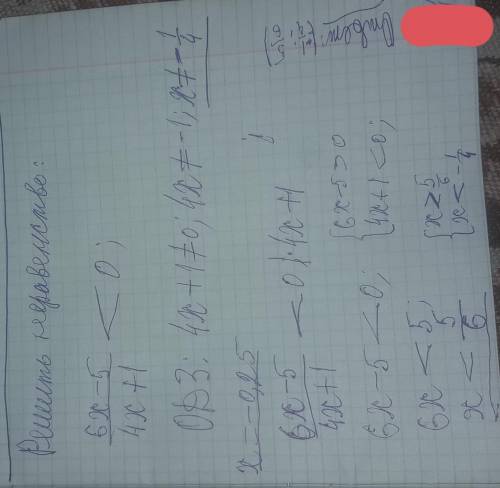 Решить неравенство:
6x-5 / 4x+1 < 0;
ОДЗ: 4x+1≠0; 4x≠-1; x≠-1/4
x=-0,25
6x-5 / 4x+1 < 0 | · 4x+1
6x-5<0; { 6x-5>0
{ 4x+1<0;
6x<5; { x≥5/6
x<5/6 { x<-1/4
Ответ: